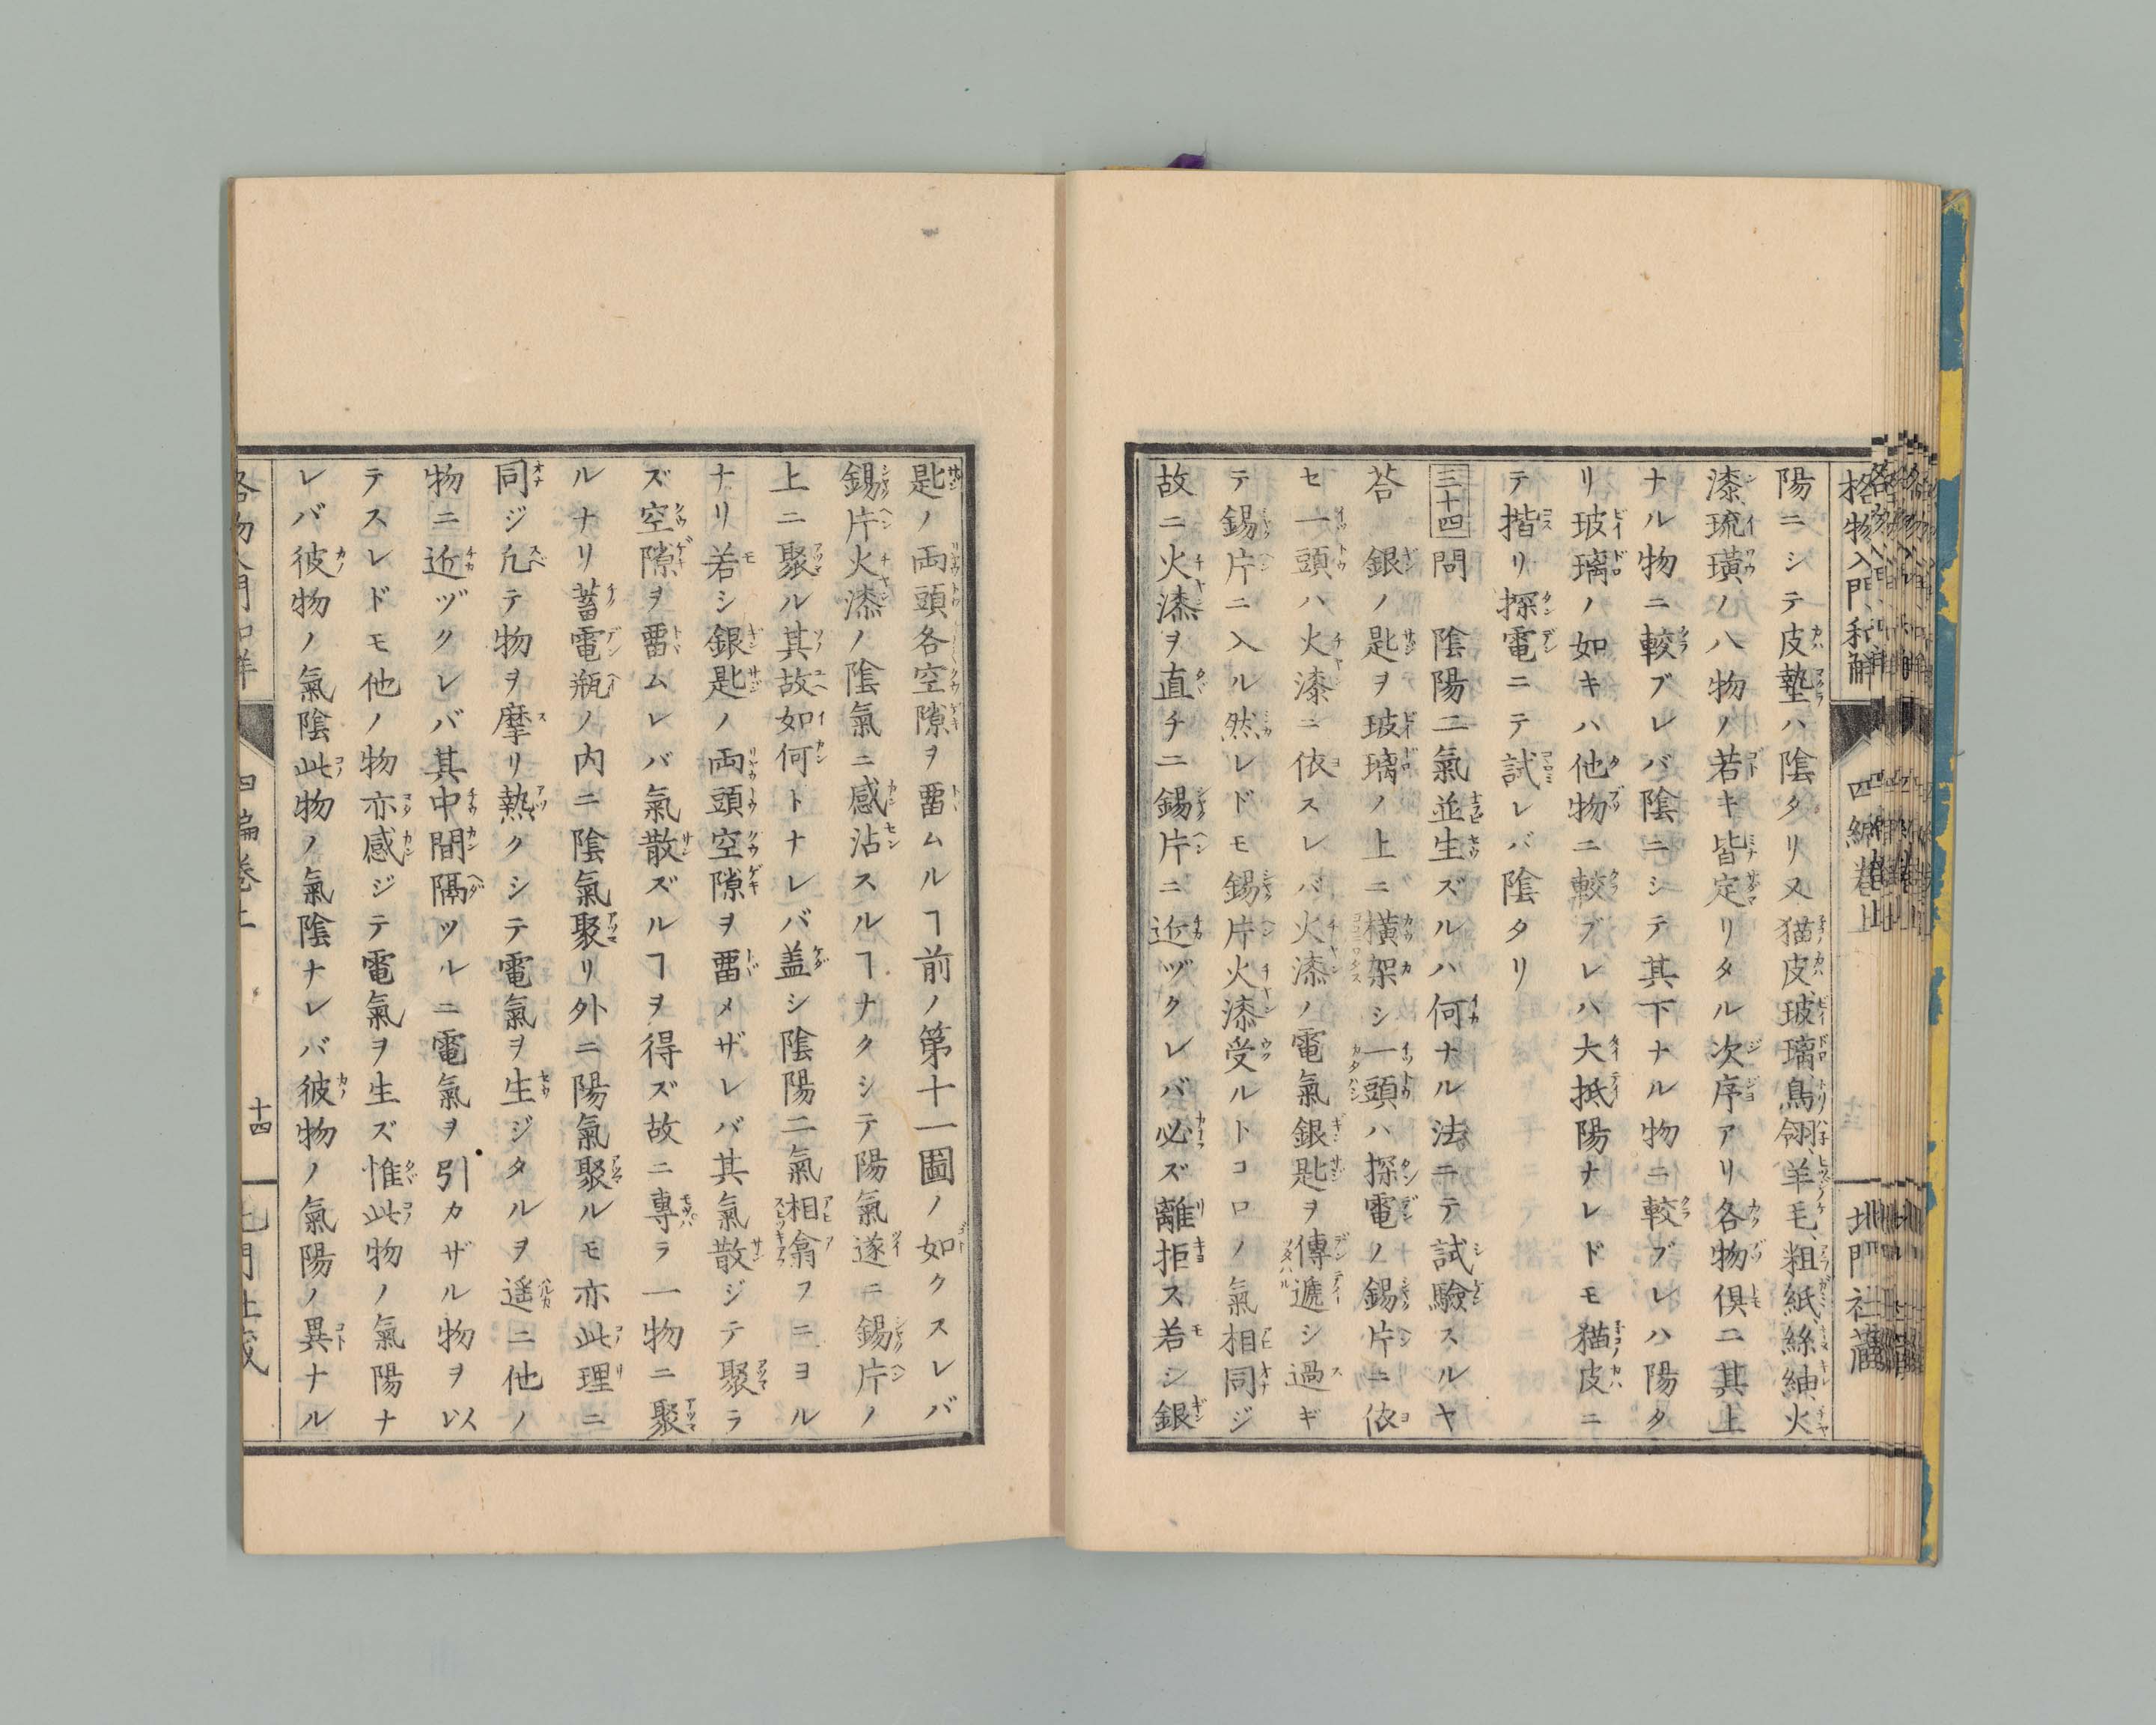 格物入門和解 四編卷上 北門社藏
陽ニシテ皮墊ハ陰タリ又猫皮、玻璃、鳥翎、羊毛、粗紙、絲紬、火
漆、琉璜ノ八物ノ若キ皆定リタル次序アリ各物俱ニ其上
ナル物ニ較ブレバ陰ニシテ其下ナル物ニ較ブレハ陽タ
リ玻璃ノ如キハ他物ニ較ブレハ大抵陽ナレドモ猫皮ニ
テ揩リ探電ニテ試レバ陰タリ
三十四 問 陰陽二氣並生ズルハ何ナル法ニテ試驗スルヤ
荅 銀ノ匙ヲ玻璃ノ上ニ橫架シ一頭ハ探電ノ錫片ニ依
セ一頭ハ火漆ニ依スレバ火漆ノ電氣銀匙ヲ傳遞シ過ギ
テ錫片ニ入ル然レドモ錫片火漆受ルトコロノ氣相同ジ
故ニ火漆ヲ直チニ錫片ニ近ヅクレバ必ズ離拒ス若シ銀
匙ノ両頭各空隙ヲ畱ムルヿ前ノ第十一圖ノ如クスレバ
錫片火漆ノ陰氣ニ感沾スルヿナクシテ陽氣遂ニ錫片ノ
上ニ聚ル其故如何トナレバ盖シ陰陽二氣相翕フニヨル
ナリ若シ銀匙ノ両頭空隙ヲ畱メザレバ其氣散ジテ聚ラ
ズ空隙ヲ畱ムレバ氣散ズルヿヲ得ズ故ニ專ラ一物ニ聚
ルナリ蓄電瓶ノ内ニ陰氣聚リ外ニ陽氣聚ルモ亦此理ニ
同ジ凢テ物ヲ摩リ熱クシテ電氣ヲ生ジタルヲ遥ニ他ノ
物ニ近ヅクレバ其中間隔ツルニ電氣ヲ引カザル物ヲ以
テスレドモ他ノ物亦感ジテ電氣ヲ生ズ惟此物ノ氣陽ナ
レバ彼物ノ氣陰此物ノ氣陰ナレバ彼物ノ氣陽ノ異ナル
十四